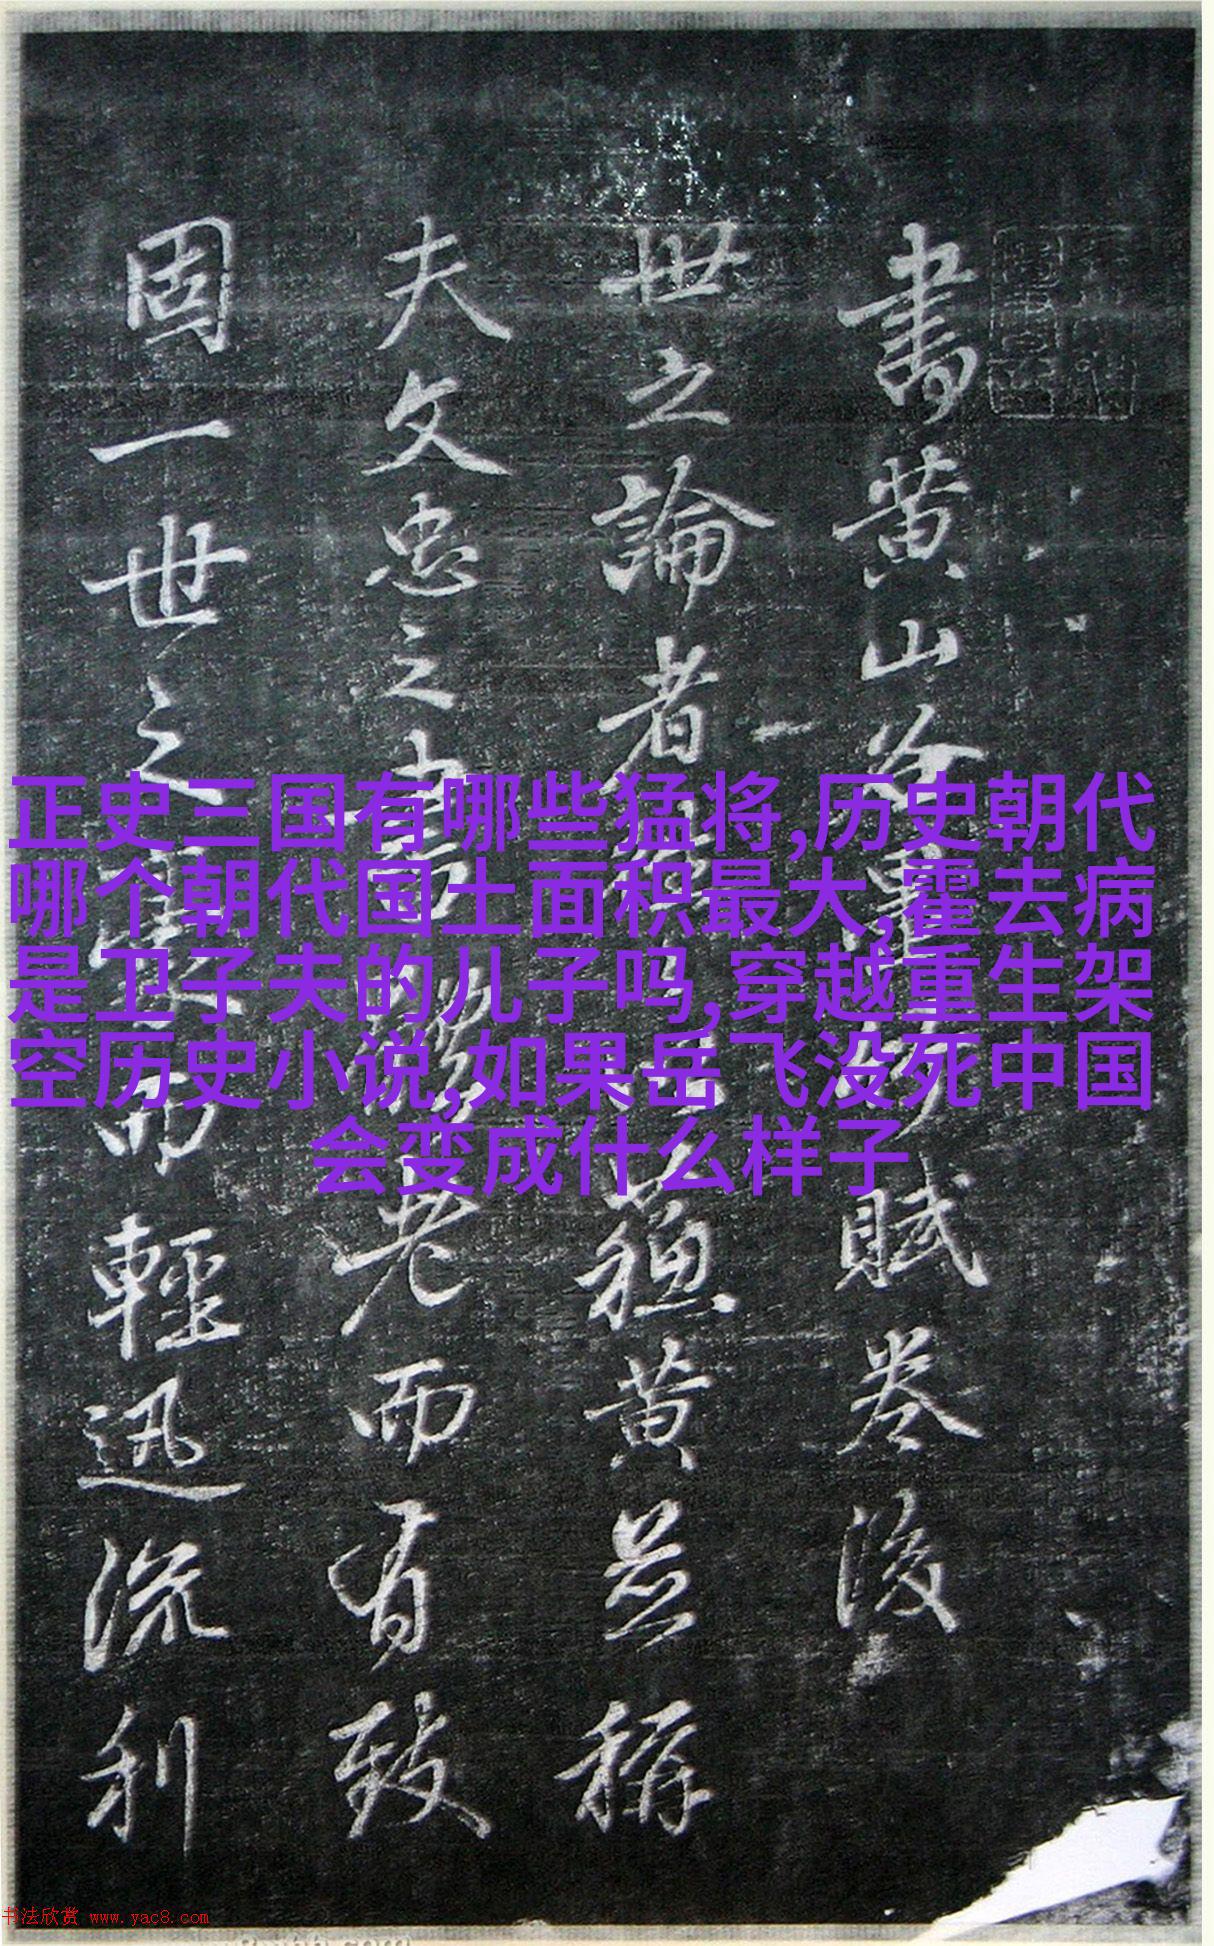 書黄山谷
賦卷後
世之論者
蘓黄並稱
夫文忠之書
老而有致
固一世之
而輕迅流利
正史三国有哪些猛将,历史朝代
哪个朝代国土面积最大,霍去病
是卫子夫的儿子吗,穿越重生架
空历史小说,如果岳飞没死中国
会变成什么样子
书法欣赏 www.yac8.com